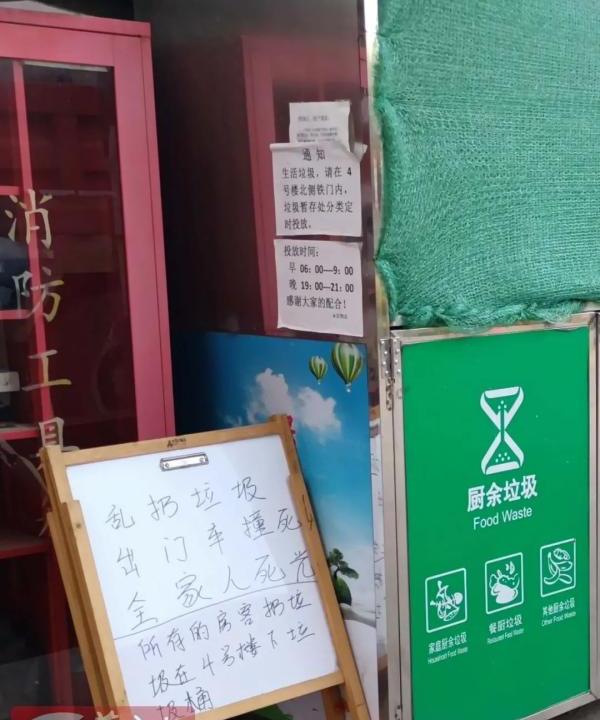 消防工具
通知
生活垃圾，请在 4
号楼北侧铁门内，
垃圾暂存处分类定
时投放。
投放时间：
早 06：00—9：00
晚 19：00—21：00
感谢大家的配合！
乱扔垃圾
出门车撞死！
全家人死光
所有的房客扔垃
圾在4号楼下垃
圾桶
厨余垃圾
Food Waste
家庭厨余垃圾
Household Food Waste
餐厨垃圾
Restaurant Food Waste
其他厨余垃圾
Other Food Waste